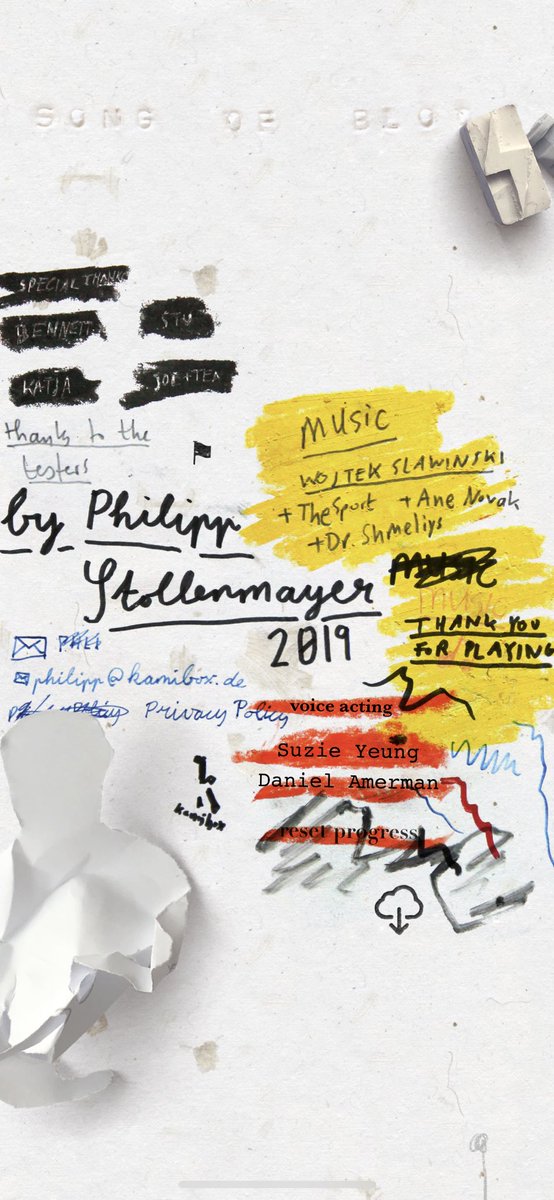 SONG OF BLOO
SPECIAL THANKS
BENNETT
STU
KATJA
JOE+TEA
thanks to the
testers
by Philipp
Stollenmayer
2019
philipp@kamibox.de
Privacy Policy
kamibox
Music
WOJTEK SLAWINSKI
+ TheSport + Ane Novak
+ Dr. Shmeliys
MUSIC
music
THANK YOU
FOR PLAYING
voice acting
Suzie Yeung
Daniel Amerman
reset progress